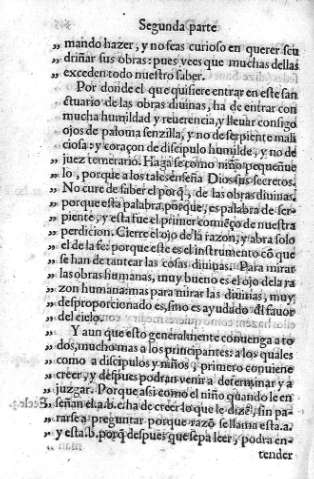 Segunda parte
„ mando hazer, y no seas curioso en querer scu
„ driñar sus obras: pues vees que muchas dellas
„ exceden todo nuestro saber.
Por donde el que quisiere entrar en este san
ctuario de las obras diuinas, ha de entrar con
mucha humildad y reuerencia, y lleuar consigo
ojos de paloma senzilla, y no de serpiente mali
ciosa: y coraçon de discipulo humilde, y no de
juez temerario. Hagase como niño pequeñue
lo, porque a los tales enseña Dios sus secretos.
No cure de saber el porq̃, de las obras diuinas,
porque esta palabra, porque, es palabra de ser-
piente, y esta fue el primer comiẽço de nuestra
perdicion. Cierre el ojo de la razon, y abra solo
el de la fe: porque este es el instrumento cõ que
se han de tantear las cosas diuinas. Para mirar
las obras humanas, muy bueno es el ojo de la ra
zon humana: mas para mirar las diuinas, muy
desproporcionado es, sino es ayudado dl fauor
del cielo.
Y aun que esto generalmente conuenga a to
dos, mucho mas a los principiantes: a los quales
como a discipulos y niños, primero conuiene
creer, y despues podran venir a determinar y a
juzgar. Porque assi como el niño quando le en
señan el.a.b.c. ha de creer lo que le dizẽ, sin pa-
rarse a preguntar porque razõ se llama esta.a.
y esta.b. porq̃ despues que sepa leer, podra en-
tender